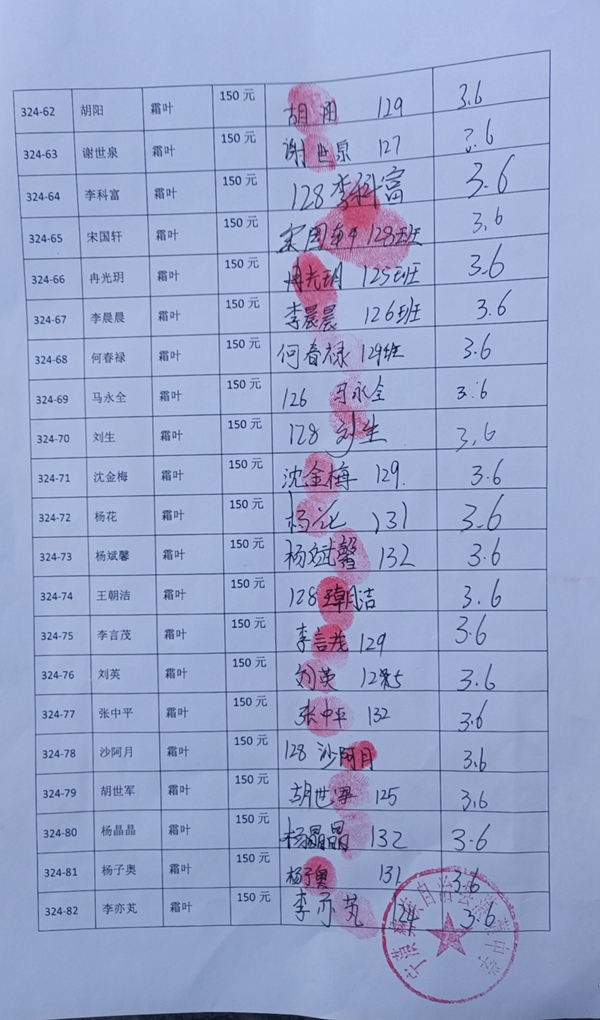 324-62 胡阳 霜叶 150 元 胡阳 129 3.6
324-63 谢世泉 霜叶 150 元 谢世泉 127 3.6
324-64 李科富 霜叶 150 元 128李科富 3.6
324-65 宋国轩 霜叶 150 元 宋国轩 128班 3.6
324-66 冉光玥 霜叶 150 元 冉光玥 125班 3.6
324-67 李晨晨 霜叶 150 元 李晨晨 126班 3.6
324-68 何春禄 霜叶 150 元 何春禄 129班 3.6
324-69 马永全 霜叶 150 元 126 马永全 3.6
324-70 刘生 霜叶 150 元 128 刘生 3.6
324-71 沈金梅 霜叶 150 元 沈金梅 129. 3.6
324-72 杨花 霜叶 150 元 杨花 131 3.6
324-73 杨斌馨 霜叶 150 元 杨斌馨 132 3.6
324-74 王朝洁 霜叶 150 元 128 王朝洁 3.6
324-75 李言茂 霜叶 150 元 李言茂 129 3.6
324-76 刘英 霜叶 150 元 刘英 3.6
324-77 张中平 霜叶 150 元 张中平 132 3.6
324-78 沙阿月 霜叶 150 元 128 沙阿月 3.6
324-79 胡世军 霜叶 150 元 胡世军 125 3.6
324-80 杨晶晶 霜叶 150 元 杨晶晶 132 3.6
324-81 杨子奥 霜叶 150 元 杨子奥 131 3.6
324-82 李亦芃 霜叶 150 元 李亦芃 124 3.6